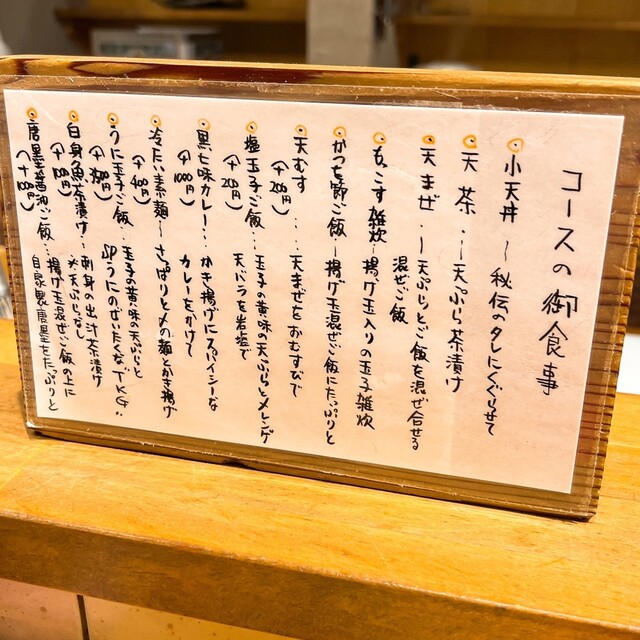 コースの御食事
小天丼 〜 秘伝のタレにくぐらせて
天茶 … 〜天ぷら茶漬け
天まぜ … 〜天ぷらとご飯を混ぜ合せる
混ぜご飯
もこす雑炊 〜 揚げ玉入りの玉子雑炊
かつを節ご飯 〜 揚げ玉混ぜご飯にたっぷりと
天むす … 天まぜをおむすびで
(+200円)
塩玉子ご飯 … 玉子の黄味の天ぷらとメレンゲ
(+200円) 天バラを岩塩で
黒七味カレー … かき揚げにスパイシーな
(+1000円) カレーをかけて
冷たい素麺 〜 さっぱりと〆の麺とかき揚げ
(+400円)
うに玉子ご飯 … 玉子の黄味の天ぷらと
SPうにのぜいたくなTKG!!
白身魚茶漬け … 刺身の出汁茶漬け
(+100円) ※天ぷらなし
唐墨醤油ご飯 … 揚げ玉混ぜご飯の上に
(+1000円) 自家製唐墨をたっぷりと